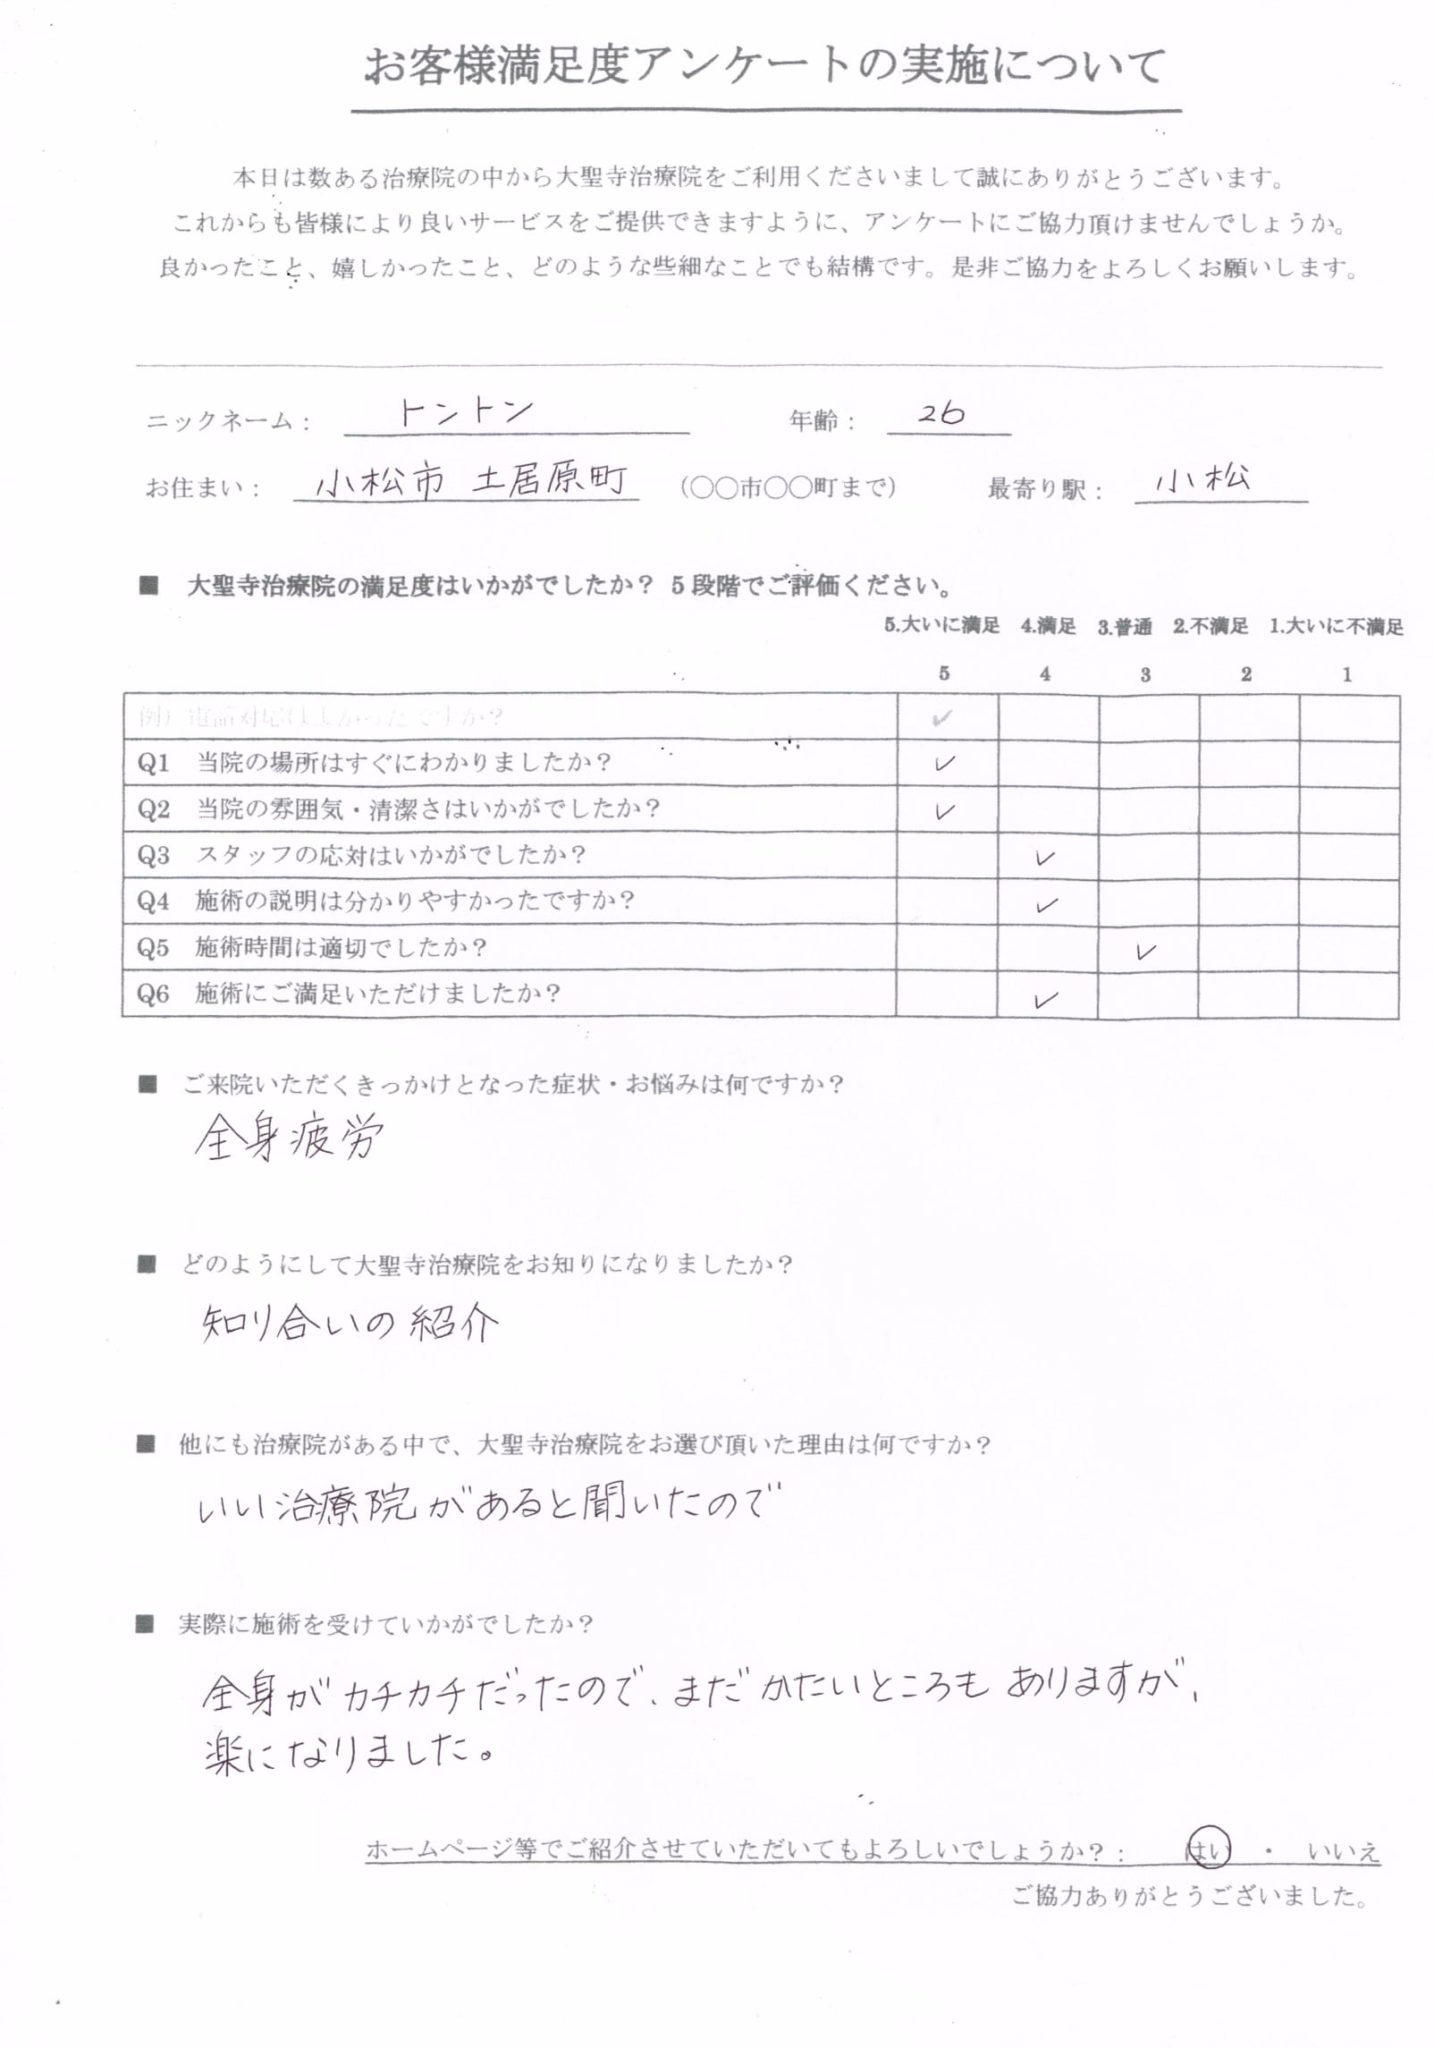 お客様満足度アンケートの実施について
本日は数ある治療院の中から大聖寺治療院をご利用くださいまして誠にありがとうございます。
これからも皆様により良いサービスをご提供できますように、アンケートにご協力頂けませんでしょうか。
良かったこと、嬉しかったこと、どのような些細なことでも結構です。是非ご協力をよろしくお願いします。
ニックネーム： トントン 年齢： 26
お住まい： 小松市 土居原町 （〇〇市〇〇町まで） 最寄り駅： 小松
■ 大聖寺治療院の満足度はいかがでしたか？ 5段階でご評価ください。
5.大いに満足 4.満足 3.普通 2.不満足 1.大いに不満足
5 4 3 2 1
例）電話対応はよかったですか？ ✓
Q1 当院の場所はすぐにわかりましたか？ ✓
Q2 当院の雰囲気・清潔さはいかがでしたか？ ✓
Q3 スタッフの応対はいかがでしたか？ ✓
Q4 施術の説明は分かりやすかったですか？ ✓
Q5 施術時間は適切でしたか？ ✓
Q6 施術にご満足いただけましたか？ ✓
■ ご来院いただくきっかけとなった症状・お悩みは何ですか？
全身疲労
■ どのようにして大聖寺治療院をお知りになりましたか？
知り合いの紹介
■ 他にも治療院がある中で、大聖寺治療院をお選び頂いた理由は何ですか？
いい治療院があると聞いたので
■ 実際に施術を受けていかがでしたか？
全身がカチカチだったので、まだかたいところもありますが、
楽になりました。
ホームページ等でご紹介させていただいてもよろしいでしょうか？： はい ・ いいえ
ご協力ありがとうございました。